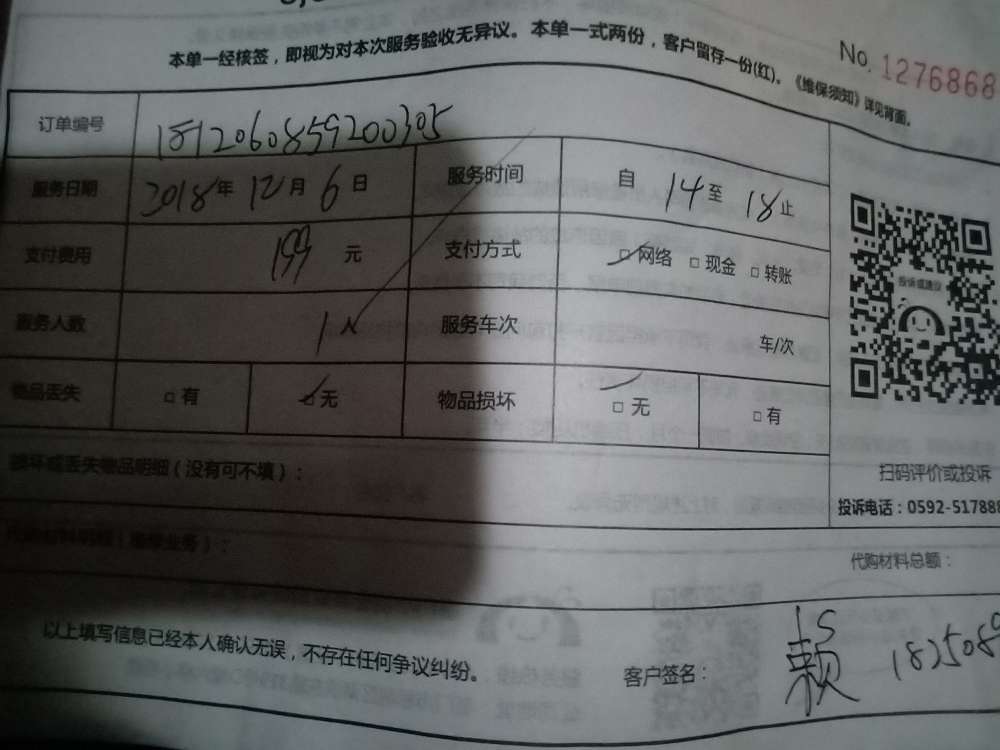 本单一经核签，即视为对本次服务验收无异议。本单一式两份，客户留存一份(红)。《维保须知》详见背面。
No. 1276868
订单编号 1812060859200305
服务日期 2018年 12月 6日 服务时间 自 14 至 18 止
支付费用 199 元 支付方式 □网络 □现金 □转账
服务人数 1人 服务车次 车/次
物品丢失 □有 □无 物品损坏 □无 □有
投诉或建议
扫码评价或投诉
投诉电话：0592-517888
损坏或丢失物品明细（没有可不填）：
代购材料明细（维修业务）：
代购材料总额：
以上填写信息已经本人确认无误，不存在任何争议纠纷。
客户签名： 赖 182508